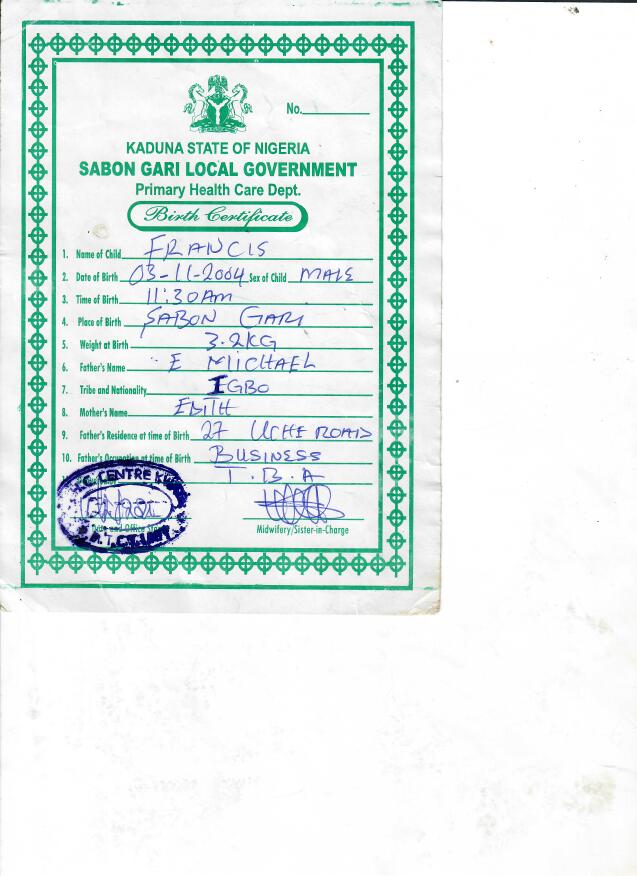 No.
KADUNA STATE OF NIGERIA
SABON GARI LOCAL GOVERNMENT
Primary Health Care Dept.
Birth Certificate
1. Name of Child FRANCIS
2. Date of Birth 03-11-2004 Sex of Child MALE
3. Time of Birth 11:30AM
4. Place of Birth SABON GARI
5. Weight at Birth 3.2KG
6. Father's Name E MICHAEL
7. Tribe and Nationality IGBO
8. Mother's Name EDITH
9. Father's Residence at time of Birth 27 UCHE ROAD
10. Father's Occupation at time of Birth BUSINESS
T.B.A
CENTRE
Date and Office
Midwifery/Sister-in-Charge